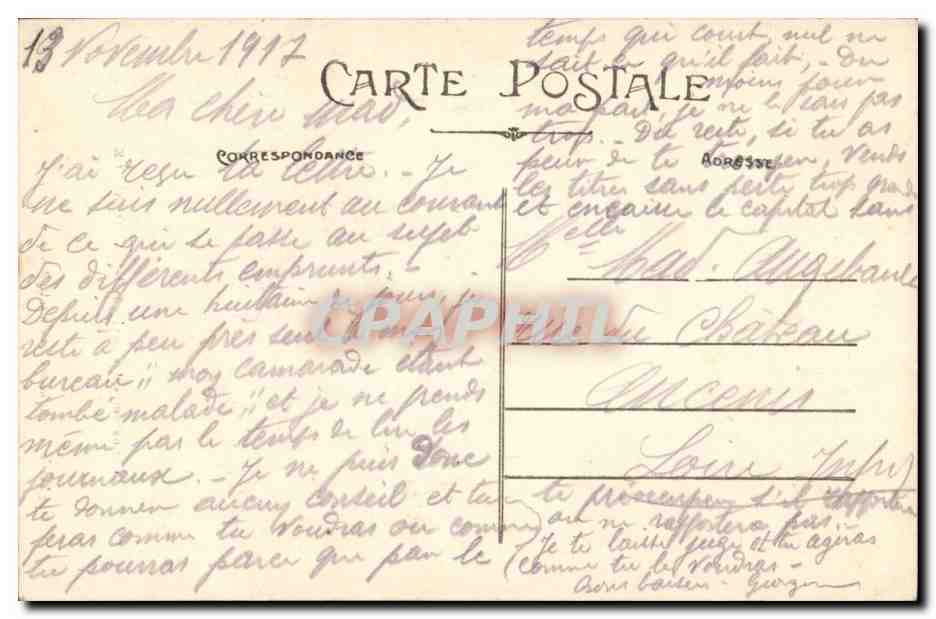 13 Novembre 1917
CARTE POSTALE
CORRESPONDANCE
ADRESSE
Ma chère Mad,
J'ai reçu ta lettre. - Je
ne suis nullement au courant
de ce qui se passe au sujet
des différents emprunts. -
Depuis une huitaine de jours, je
reste à peu près seul dans
bureau " mon camarade étant
tombé malade " et je ne prends
même pas le temps de lire les
journaux. - Je ne puis donc
te donner aucun conseil et tu
feras comme tu voudras ou comme
tu pourras parce que par le
temps qui court, nul ne
sait ce qu'il fait, - Du
moins pour
ma part, je ne le sais pas
trop. - Du reste, si tu as
peur de te tromper, vends
les titres sans perte trop grande
et encaisse le capital sans
te préoccuper s'il rapportera
ou ne rapportera pas. -
Je te laisse juge et tu agiras
comme tu le voudras -
Bons baisers -
Melle Mad. Angebault
Rue du Château
Ancenis
Loire Infre
CPAPHIL